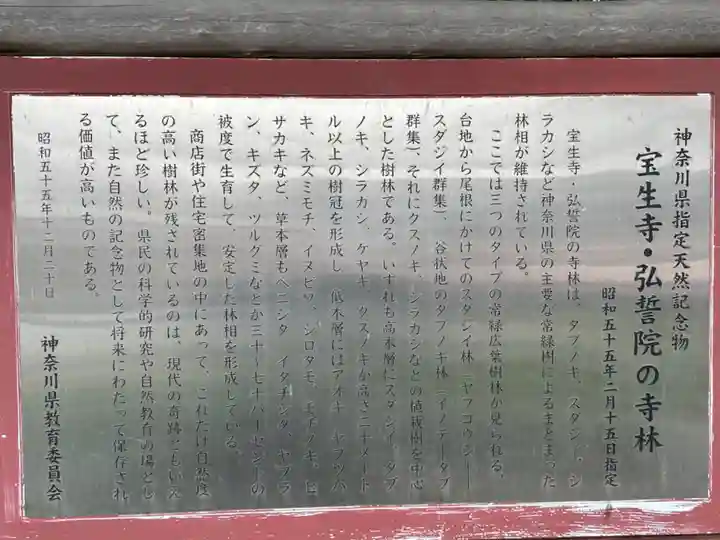 神奈川県指定天然記念物
宝生寺・弘誓院の寺林
昭和五十五年二月十五日指定
宝生寺・弘誓院の寺林は、タブノキ、スダジイ、シ
ラカシなど神奈川県の主要な常緑樹によるまとまった
林相が維持されている。
ここでは三つのタイプの常緑広葉樹林が見られる。
台地から尾根にかけてのスダジイ林（ヤブコウジ―
スダジイ群集）、谷状地のタブノキ林（イノデ―タブ
群集）、それにクスノキ、シラカシなどの植栽樹を中心
とした樹林である。いずれも高木層にスダジイ、タブ
ノキ、シラカシ、ケヤキ、クスノキが高さ二十メート
ル以上の樹冠を形成し、低木層にはアオキ、ヤブツバ
キ、ネズミモチ、イヌビワ、シロダモ、モチノキ、ヒ
サカキなど、草本層もベニシダ、イタチシダ、ヤブラ
ン、キズタ、ツルグミなどが三十～七十パーセントの
被度で生育して、安定した林相を形成している。
商店街や住宅密集地の中にあって、これだけ自然度
の高い樹林が残されているのは、現代の奇跡ともいえ
るほど珍しい。県民の科学的研究や自然教育の場とし
て、また自然の記念物として将来にわたって保存され
る価値が高いものである。
昭和五十五年十二月二十日
神奈川県教育委員会